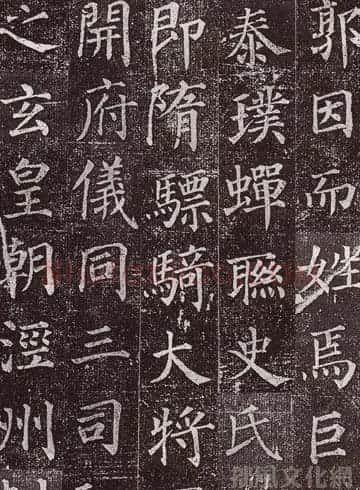 郭因而姓焉巨
泰璞蟬聯史氏
即隋驃騎大將
開府儀同三司
之玄皇朝涇州
文化網